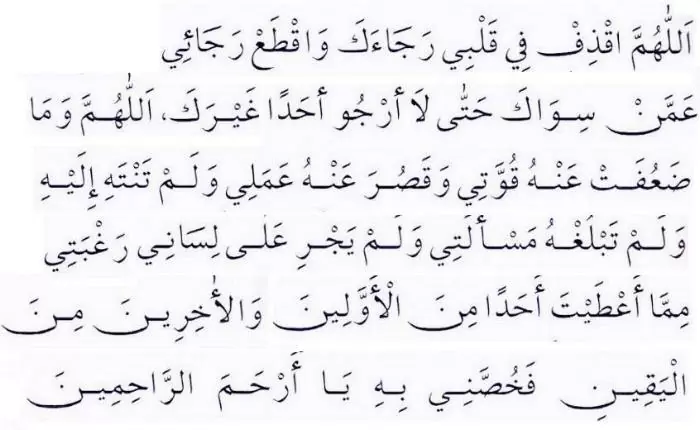 اَللّٰهُمَّ اقْذِفْ فِي قَلْبِي رَجَاءَكَ وَاقْطَعْ رَجَائِي
عَمَّنْ سِوَاكَ حَتّٰى لَا أَرْجُو أَحَدًا غَيْرَكَ، اَللّٰهُمَّ وَمَا
ضَعُفَتْ عَنْهُ قُوَّتِي وَقَصُرَ عَنْهُ عَمَلِي وَلَمْ تَنْتَهِ إِلَيْهِ
وَلَمْ تَبْلُغْهُ مَسْأَلَتِي وَلَمْ يَجْرِ عَلَى لِسَانِي رَغْبَتِي
مِمَّا أَعْطَيْتَ أَحَدًا مِنَ الْأَوَّلِينَ وَالْأٰخِرِينَ مِنَ
الْيَقِينِ فَخُصَّنِي بِهِ يَا أَرْحَمَ الرَّاحِمِينَ